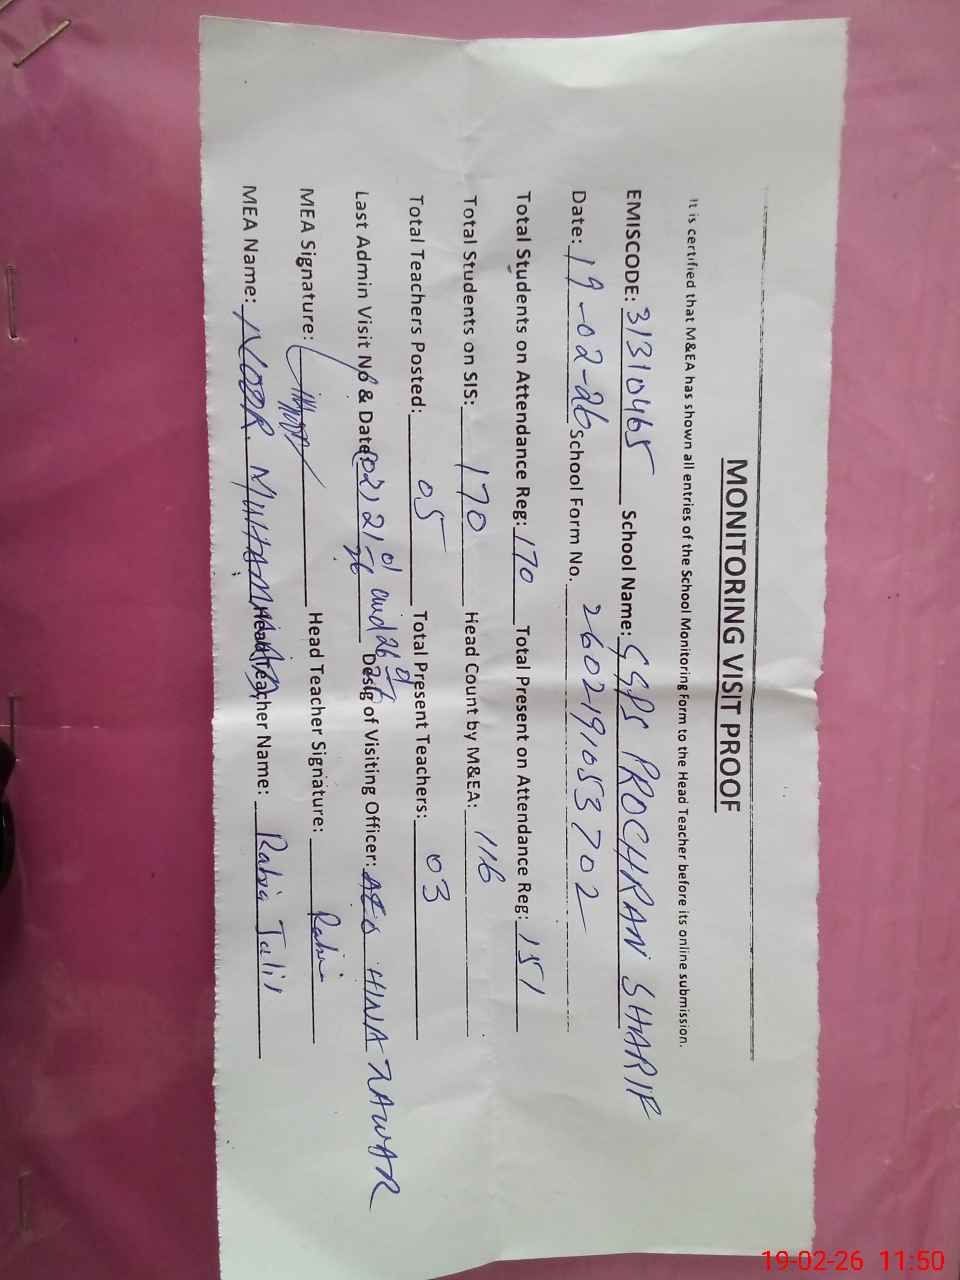 MONITORING VISIT PROOF
It is certified that M&EA has shown all entries of the School Monitoring Form to the Head Teacher before its online submission.
EMISCODE: 31310465 School Name: GGPS PROCHRAN SHARIF
Date: 19-02-26 School Form No. 2602191053702
Total Students on Attendance Reg: 170 Total Present on Attendance Reg: 151
Total Students on SIS: 170 Head Count by M&EA: 116
Total Teachers Posted: 05 Total Present Teachers: 03
Last Admin Visit No & Date: (02) 21-01-26 and 26-01-26 Desig of Visiting Officer: AEO HINA ZAWAR
MEA Signature: Head Teacher Signature: Rabi
MEA Name: NOOR MUHAMMAD Head Teacher Name: Rabia Jalil
19-02-26 11:50